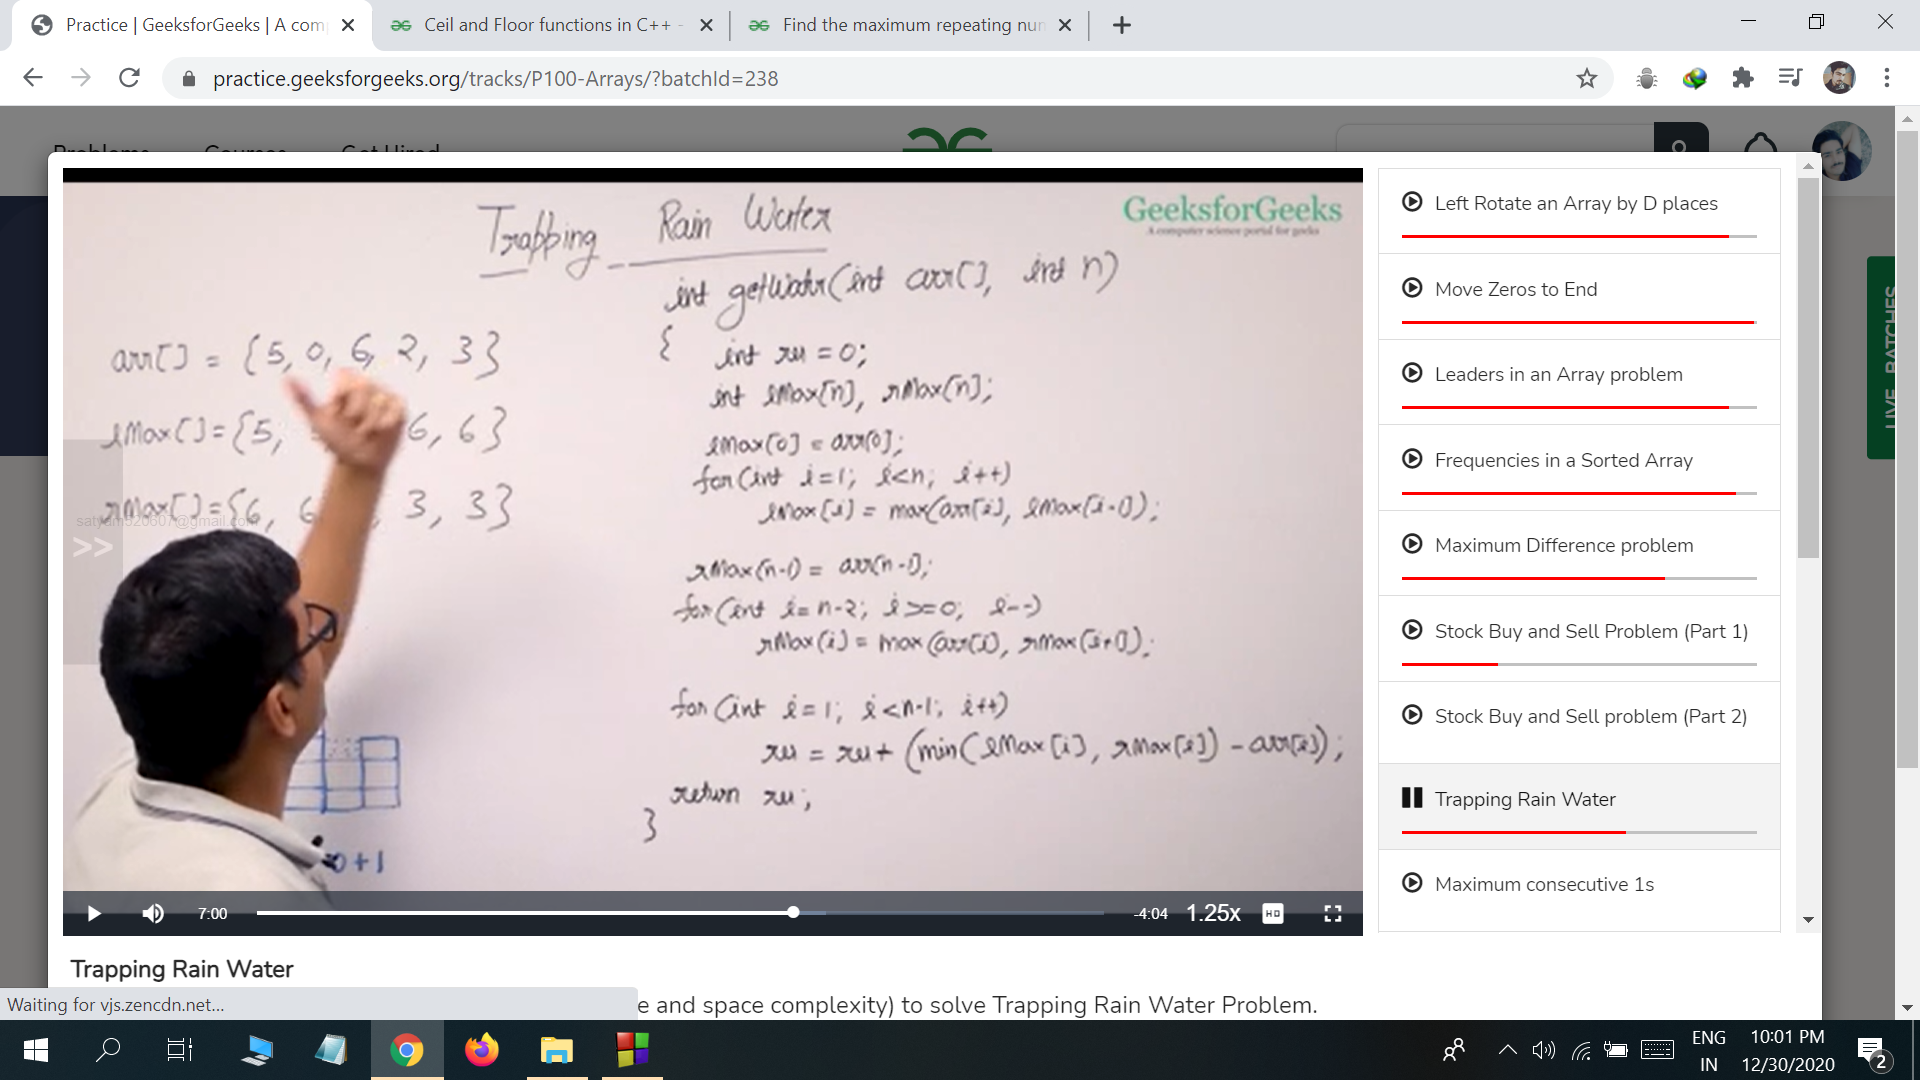 Practice | GeeksforGeeks | A com
Ceil and Floor functions in C++ -
Find the maximum repeating num
practice.geeksforgeeks.org/tracks/P100-Arrays/?batchId=238
Problems Courses Get Hired
Trapping Rain Water
GeeksforGeeks
A computer science portal for geeks
int getWater(int arr[], int n)
{
int res = 0;
int lMax[n], rMax[n];
lMax[0] = arr[0];
for(int i=1; i<n; i++)
lMax[i] = max(arr[i], lMax[i-1]);
rMax[n-1] = arr[n-1];
for(int i=n-2; i>=0; i--)
rMax[i] = max(arr[i], rMax[i+1]);
for(int i=1; i<n-1; i++)
res = res + (min(lMax[i], rMax[i]) - arr[i]);
return res;
}
arr[] = {5, 0, 6, 2, 3}
lMax[]={5, 6, 6}
rMax[]={6, 6 3, 3}
satyam520607@gmail.com
>>
0+1
7:00
-4:04
1.25x
HD
Left Rotate an Array by D places
Move Zeros to End
Leaders in an Array problem
Frequencies in a Sorted Array
Maximum Difference problem
Stock Buy and Sell Problem (Part 1)
Stock Buy and Sell problem (Part 2)
Trapping Rain Water
Maximum consecutive 1s
LIVE BATCHES
Trapping Rain Water
e and space complexity) to solve Trapping Rain Water Problem.
Waiting for vjs.zencdn.net...
ENG
IN
10:01 PM
12/30/2020
2